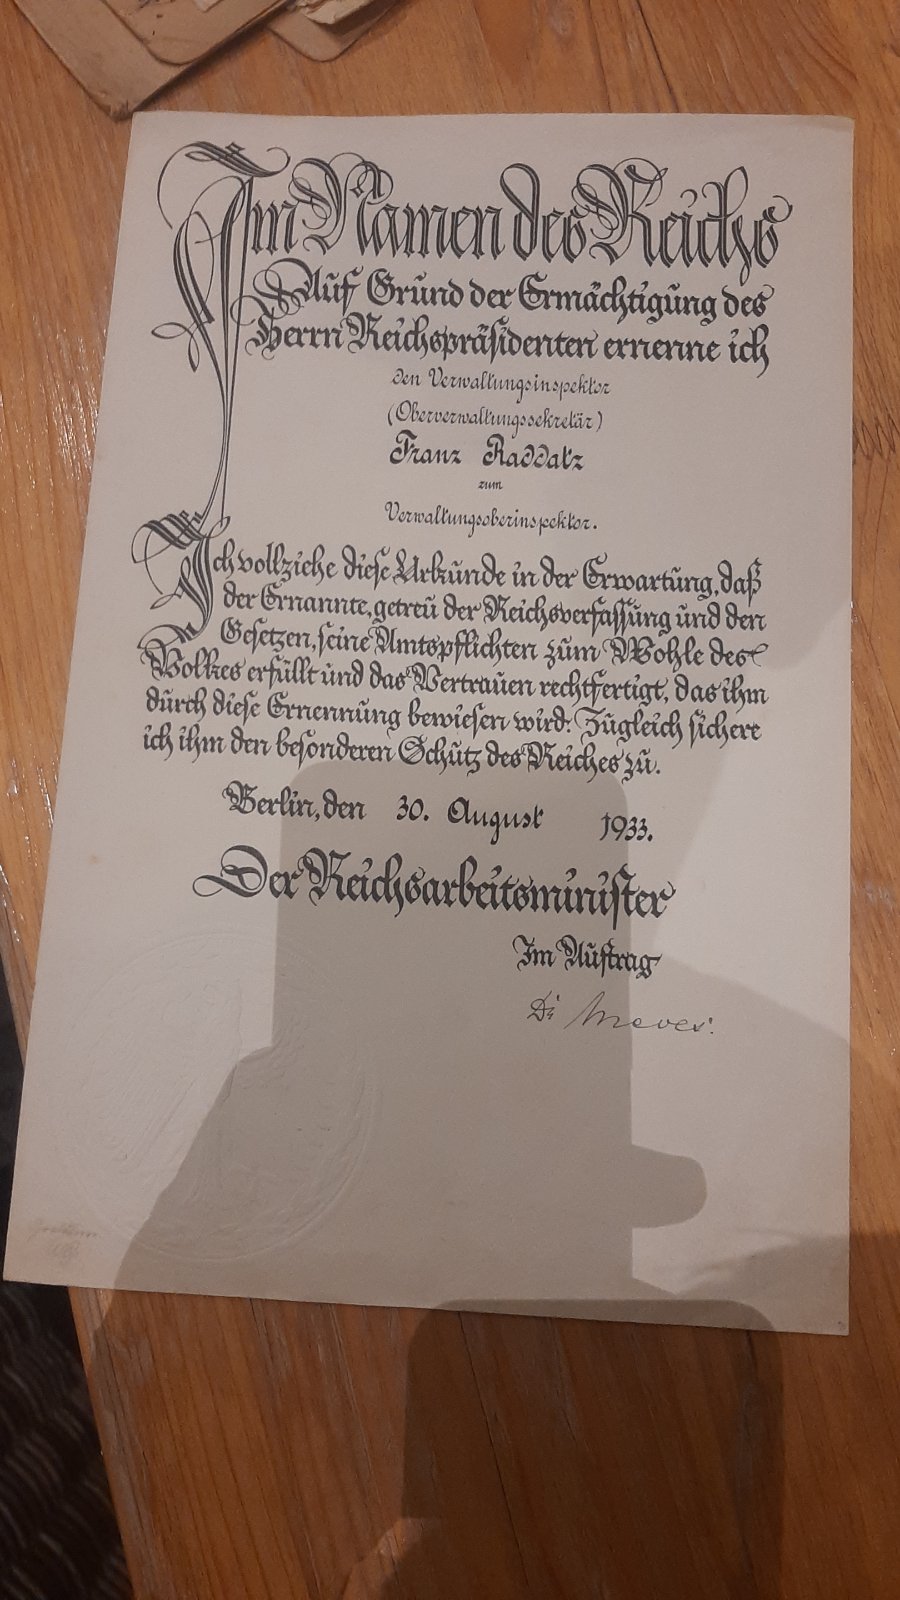 Im Namen des Reichs
Auf Grund der Ermächtigung des
Herrn Reichspräsidenten ernenne ich
den Verwaltungsinspektor
(Oberverwaltungssekretär)
Franz Raddatz
zum
Verwaltungsoberinspektor.
Ich vollziehe diese Urkunde in der Erwartung, daß
der Ernannte, getreu der Reichsverfassung und den
Gesetzen, seine Amtspflichten zum Wohle des
Volkes erfüllt und das Vertrauen rechtfertigt, das ihm
durch diese Ernennung bewiesen wird. Zugleich sichere
ich ihm den besonderen Schutz des Reiches zu.
Berlin, den 30. August 1933.
Der Reichsarbeitsminister
Im Auftrag
Dr